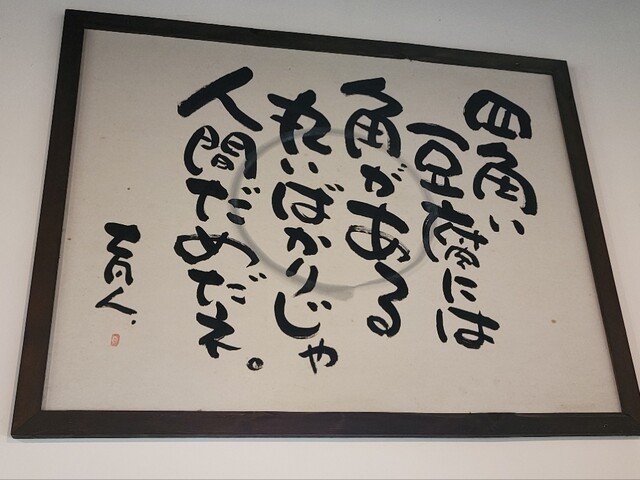 四角い
豆腐には
角がある
丸いばかりじゃ
人間だめだね。